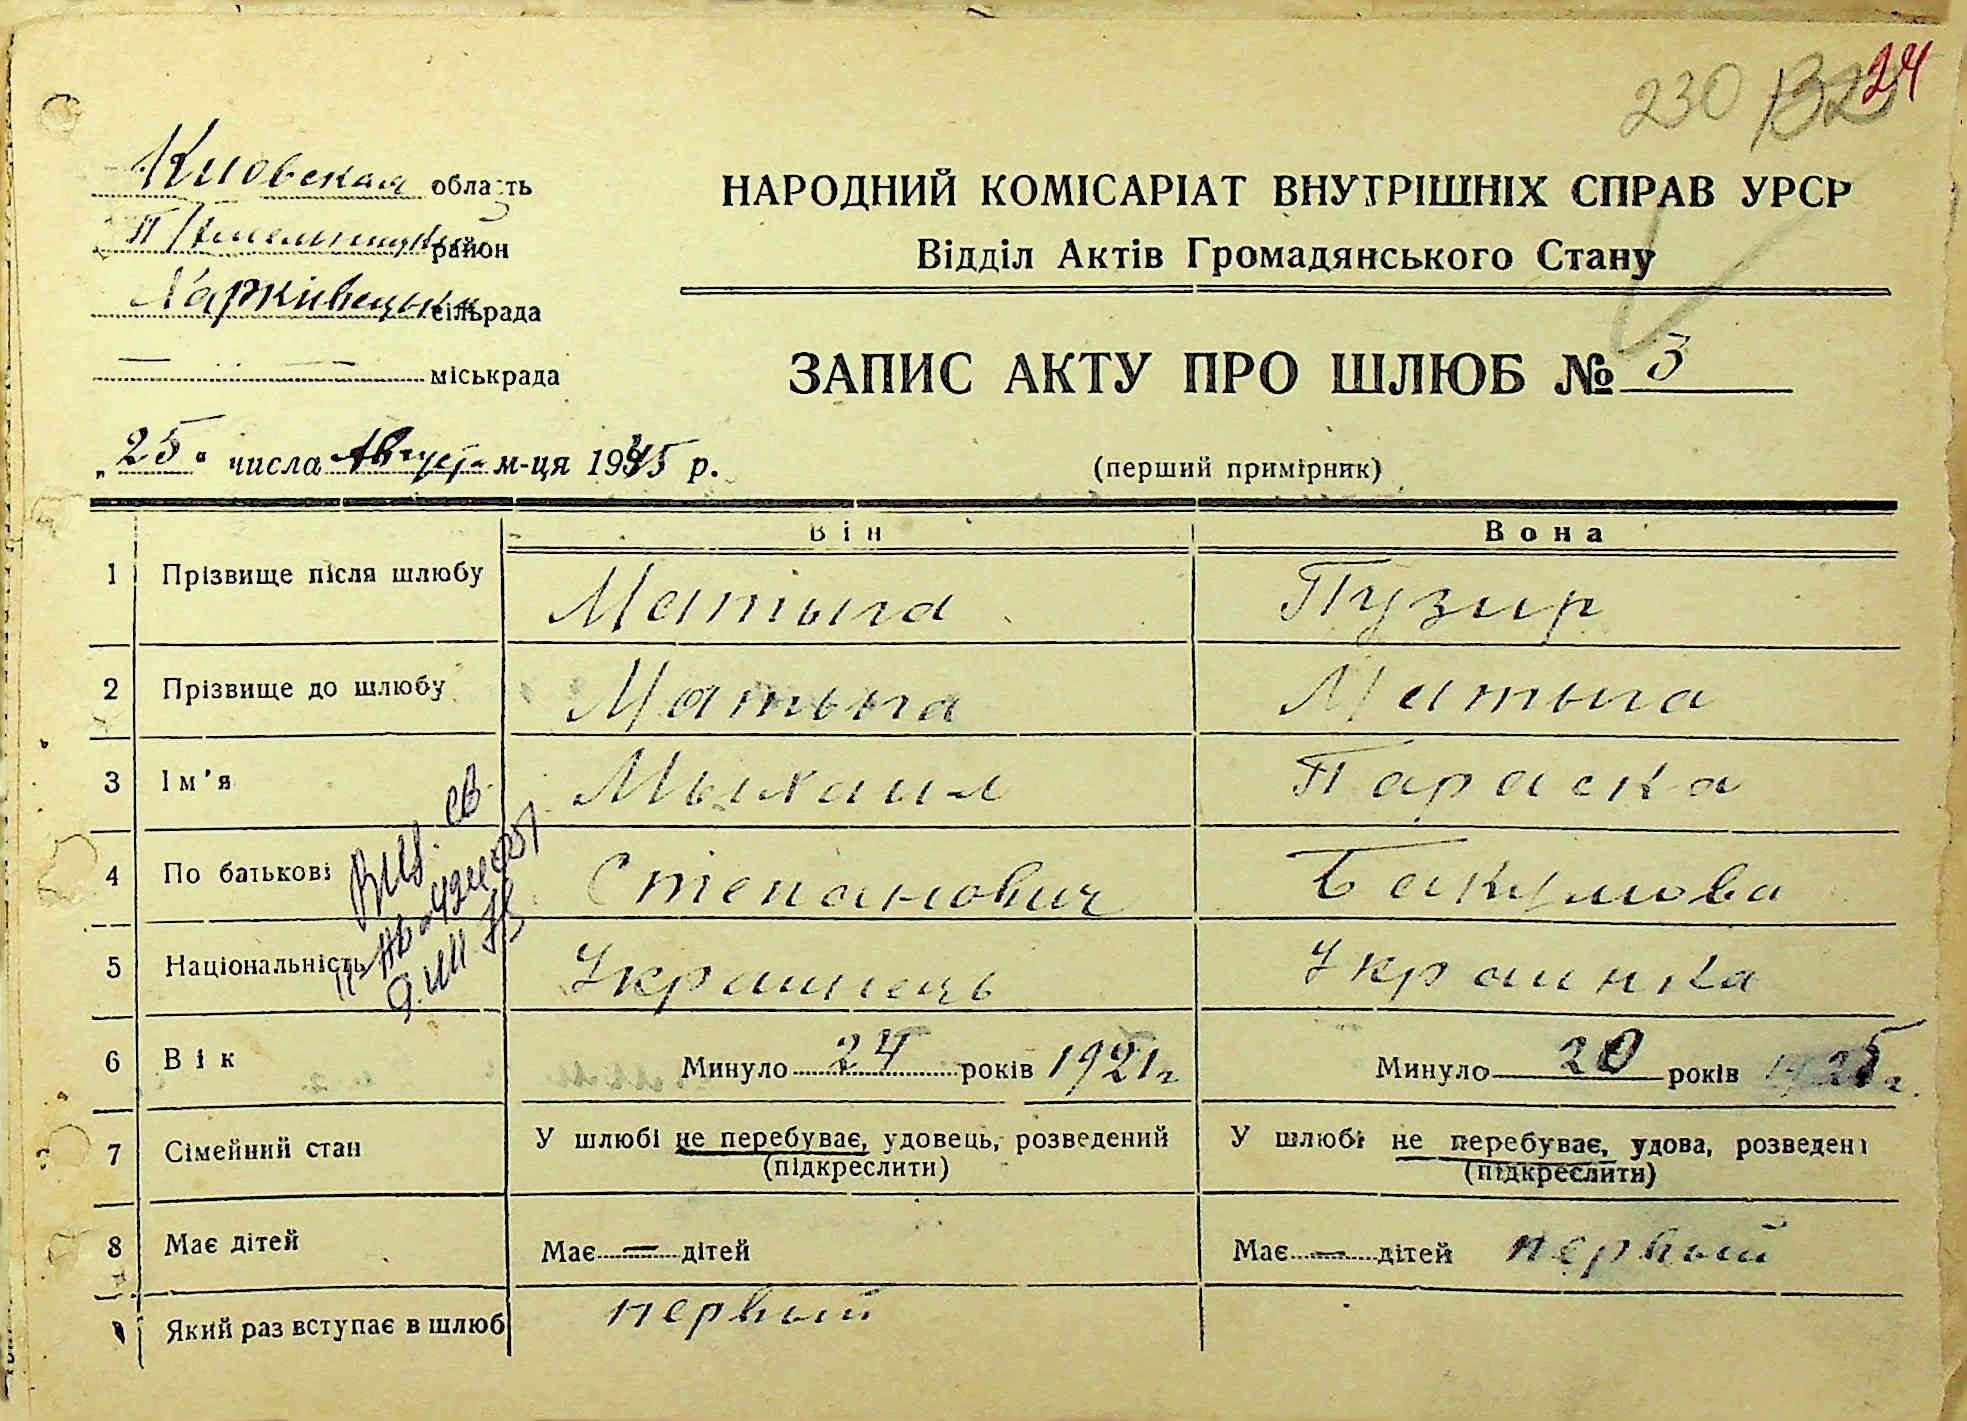 230 24
Киовская область
П Хмельницкий район
Харкивецька сільрада
— — міськрада
НАРОДНИЙ КОМІСАРІАТ ВНУТРІШНІХ СПРАВ УРСР
Відділ Актів Громадянського Стану
ЗАПИС АКТУ ПРО ШЛЮБ № 3
„25" числа Август м-ця 1945 р.
(перший примірник)
Він Вона
1 Прізвище після шлюбу Матыга Пузир
2 Прізвище до шлюбу Матыга Матыга
3 Ім'я Мыхаил Параска
4 По батькові Степанович Бакумова
5 Національність Украинець Украинка
6 Вік Минуло 24 років 1921 г Минуло 20 років 1925 г.
7 Сімейний стан У шлюбі не перебуває, удовець, розведений У шлюбі не перебуває, удова, розведена
(підкреслити) (підкреслити)
8 Має дітей Має — дітей Має — дітей первый
Який раз вступає в шлюб первый